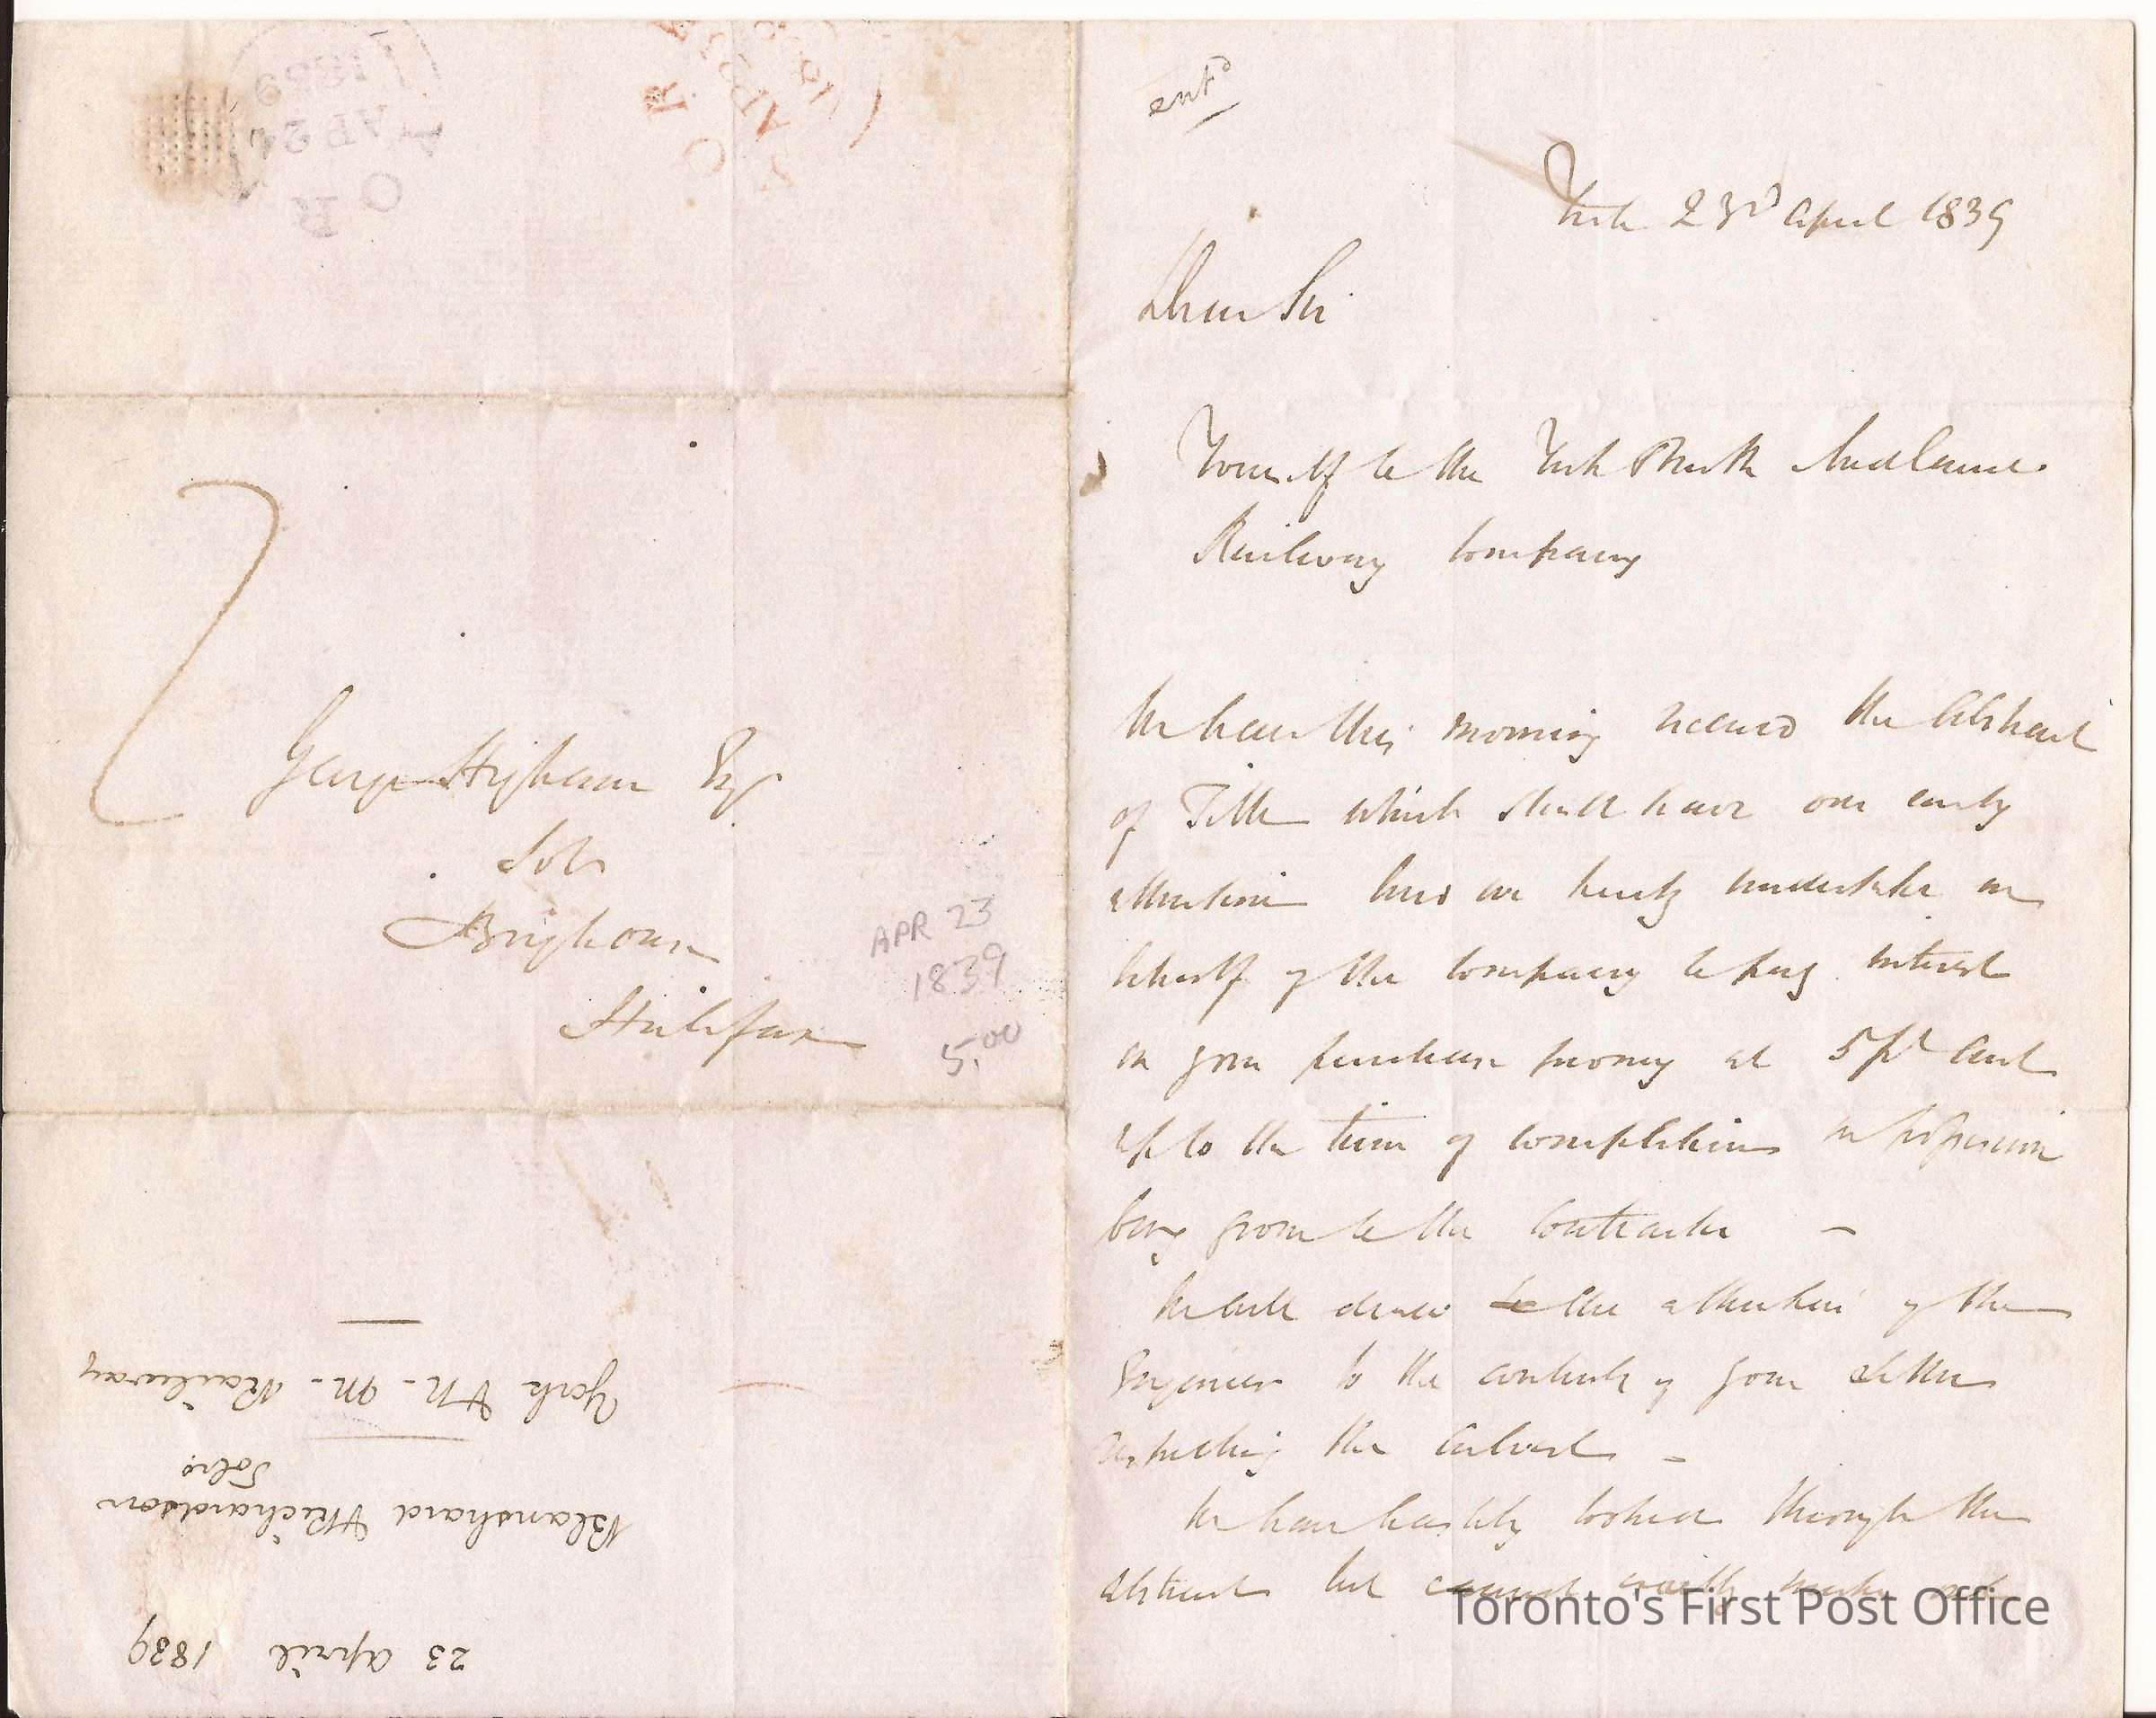 entd
York 23rd April 1839
Dear Sir
Yourself to the York & North Midland
Railway Company
We have this morning received the Abstract
of Title which shall have our early
attention and we hereby undertake on
behalf of the Company to pay interest
on your purchase money at 5 pr Cent
up to the time of completion on possession
being given to the Contractor –
We will draw to the attention of the
Engineer to the contents of your letter
respecting the Culvert –
We have hastily looked through the
Abstract but cannot make out
George Higham Esqr
Solr
Brighouse
Halifax
7
APR 23
1839
5.00
23 April 1839
Blanshard & Richardson
Solrs
York & N. M. Railway
YORK
AP 23
1839
AP 24
1839
Toronto's First Post Office